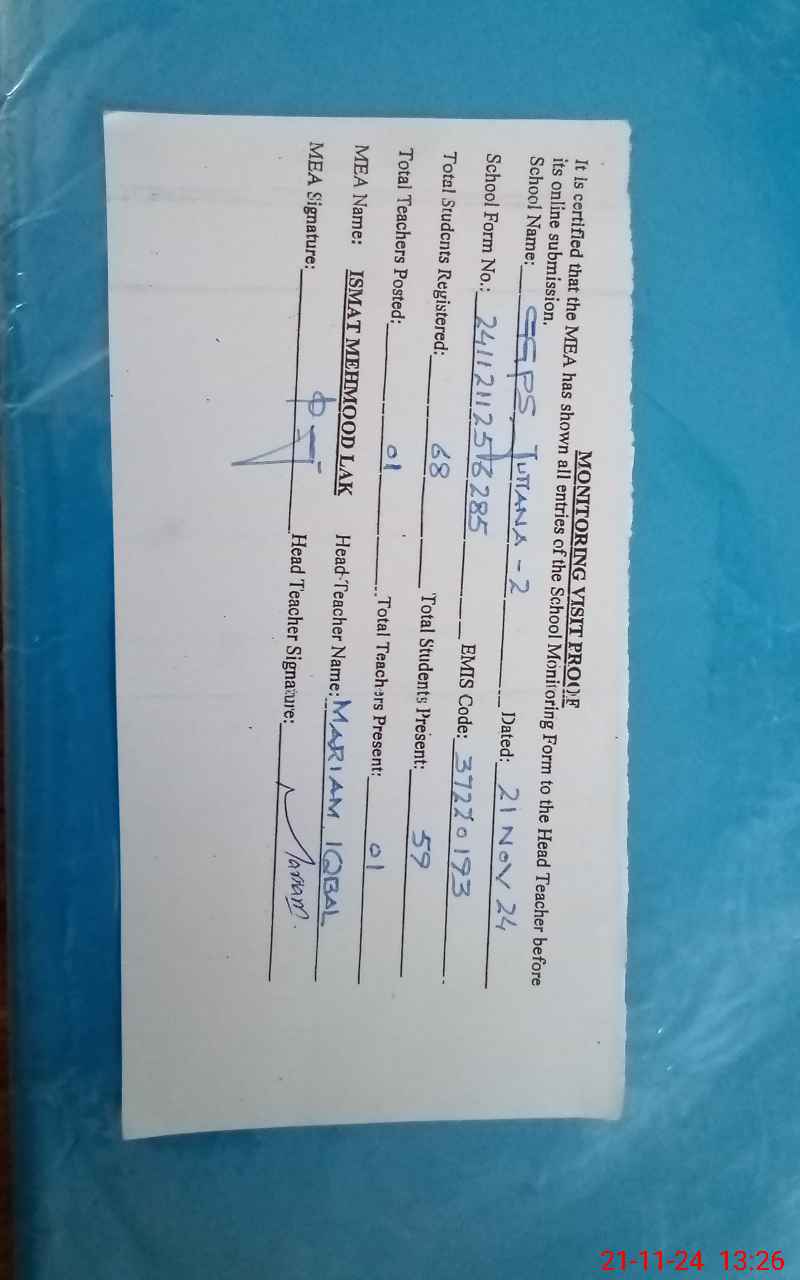 MONITORING VISIT PROOF
It is certified that the MEA has shown all entries of the School Monitoring Form to the Head Teacher before
its online submission.
School Name: GGPS, TUTTANA - 2 Dated: 21 NOV 24
School Form No.: EMIS Code:
Total Students Registered: 68 Total Students Present: 59
Total Teachers Posted: 01 Total Teachers Present: 01
MEA Name: ISMAT MEHMOOD LAK Head Teacher Name: MARIAM IQBAL
MEA Signature: Head Teacher Signature: Mariam.
21-11-24 13:26